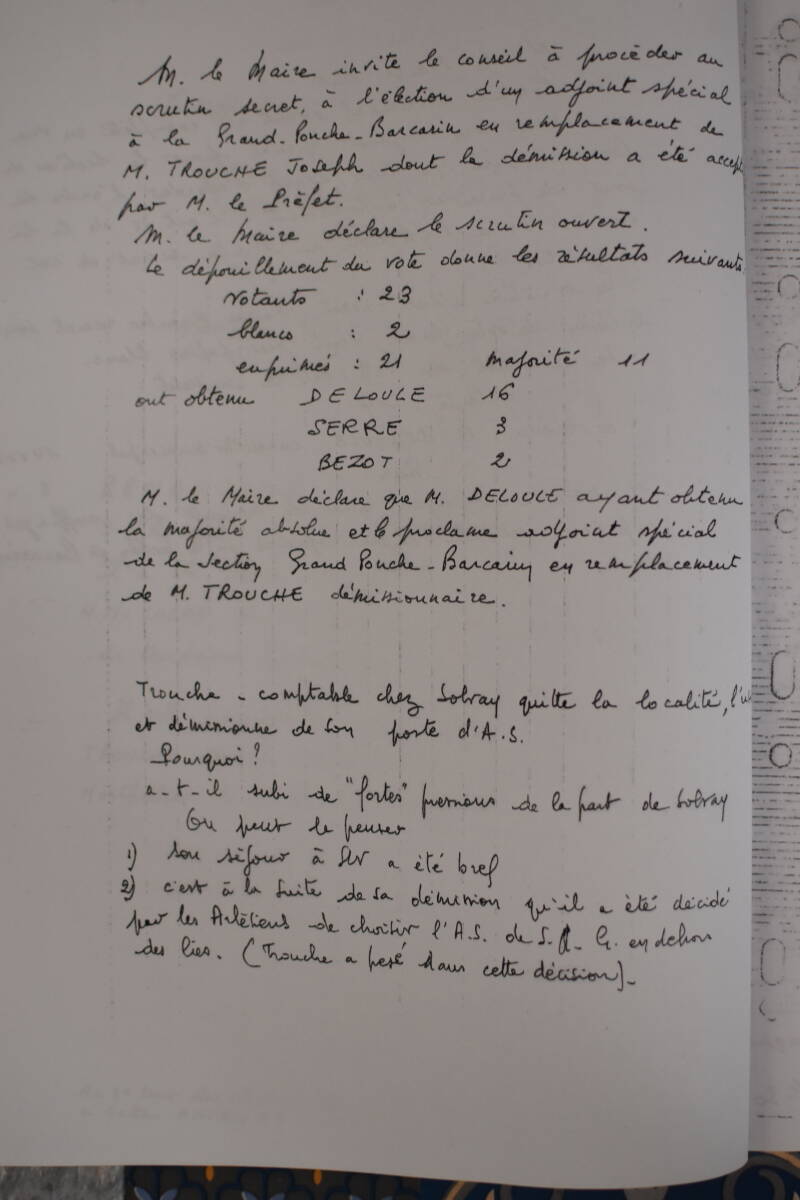 M. le Maire invite le conseil à procéder au
scrutin secret, à l'élection d'un adjoint spécial
à la Grand-Ponche-Barcarin en remplacement de
M. TROUCHE Joseph dont la démission a été accep
par M. le Préfet.
M. le Maire déclare le scrutin ouvert.
Le dépouillement du vote donne les résultats suivants
Votants : 23
blancs : 2
exprimés : 21 Majorité 11
ont obtenu DELOULE 16
SERRE 3
BEZOT 2
M. le Maire déclare que M. DELOULE ayant obtenu
la majorité absolue et le proclame adjoint spécial
de la Section Grand Ponche-Barcarin en remplacement
de M. TROUCHE démissionnaire.
Trouche - comptable chez Solvay quitte la localité,
et démissionne de son poste d'A.S.
Pourquoi ?
a-t-il subi de "fortes" pressions de la part de Solvay
On peut le penser
1) Son séjour à a été bref
2) c'est à la suite de sa démission qu'il a été décidé
par les Arlésiens de choisir l'A.S. de S. G. en dehors
des lies. (Trouche a pesé dans cette décision)-